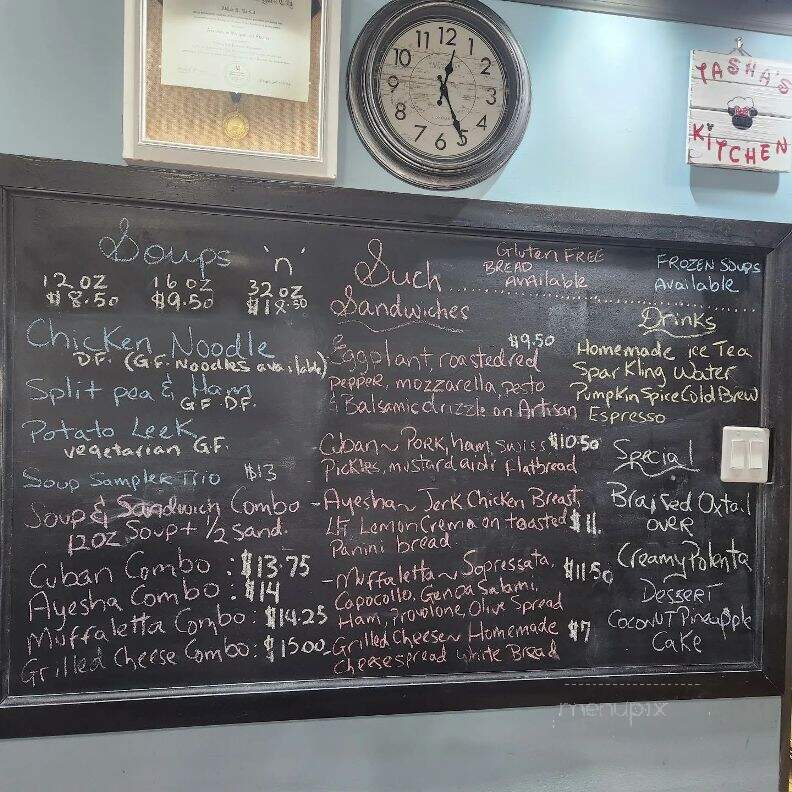 TASHA'S
KITCHEN
12
1
2
3
4
5
6
7
8
9
10
11
Soups 'n'
12 oz 16 oz 32 oz
$8.50 $9.50 $18.50
Chicken Noodle
D.F. (G.F. Noodles available)
Split pea & Ham
G.F. D.F.
Potato Leek
vegetarian G.F.
Soup Sampler Trio $13
Soup & Sandwich Combo
12oz Soup + 1/2 Sand.
Cuban Combo : $13.75
Ayesha Combo : $14
Muffaletta Combo : $14.25
Grilled Cheese Combo : $15.00
Such
Sandwiches
Gluten FREE
BREAD
Available
$9.50
Eggplant, roasted red
pepper, mozzarella, pesto
& Balsamic drizzle on Artisan
Cuban ~ Pork, ham, swiss $10.50
Pickles, mustard aioli flatbread
- Ayesha ~ Jerk Chicken Breast
Lemon Crema on toasted $11.
Panini bread
- Muffaletta ~ Sopressata, $11.50
Capocollo, Genoa Salami,
Ham, Provolone, Olive Spread
- Grilled Cheese ~ Homemade $7
Cheese spread white Bread
FROZEN SOUPS
Available
Drinks
Homemade ice Tea
Sparkling Water
Pumpkin Spice Cold Brew
Espresso
Special
Braised Oxtail
over
Creamy Polenta
Dessert
Coconut Pineapple
Cake
menupix